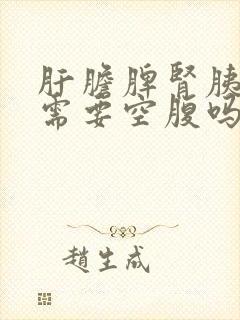 肝膽脾腎胰
需要空腹嗎
趙生成